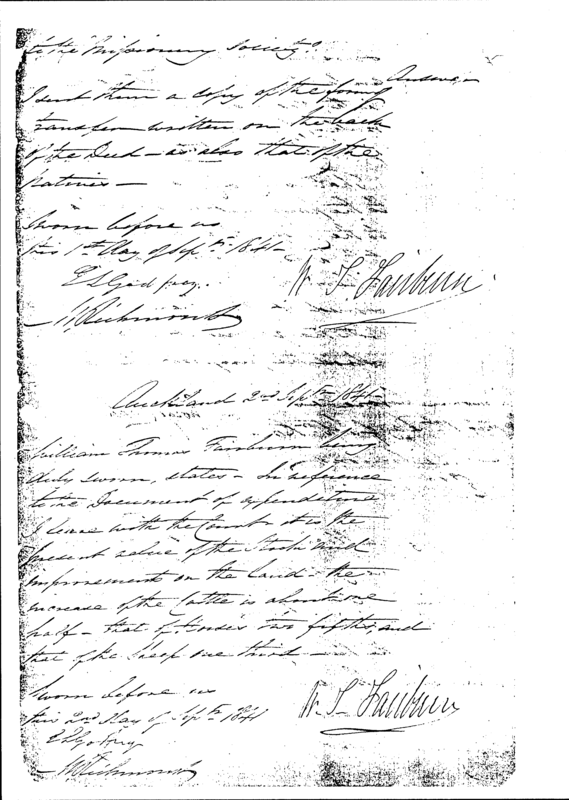 to the Missionary Society?
Answer
I send them a copy of the forms
transfer written on the back
of the Deed - as also that of the
natives -
Sworn before us
this 1st day of Septr 1841 -
E L Godfrey.
M Richmond
W. T. Fairburn.
Auckland 2nd Septr 1841 -
William Thomas Fairburn being
duly sworn, states - In reference
to the Document of expenditure
I leave with the Court it is the
present value of the Stock and
improvements on the Land - the
increase of the Cattle is about one
half - that of Horses two fifths, and
that of the Sheep one third -
Sworn before us
this 2nd day of Septr 1841
E L Godfrey
M Richmond
W. T. Fairburn